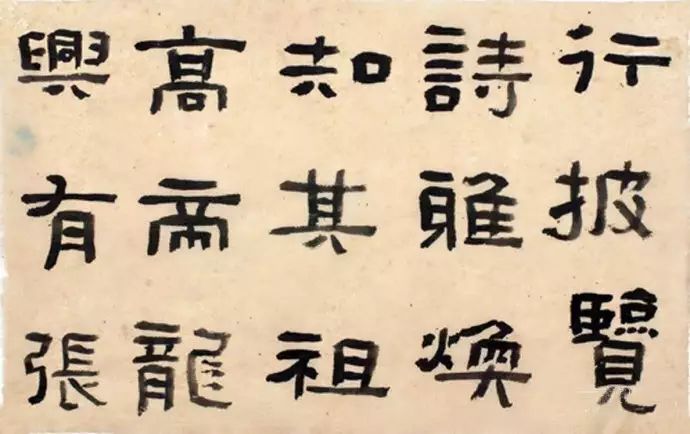 行披覽
詩雅煥
知其祖
高帝龍
興有張